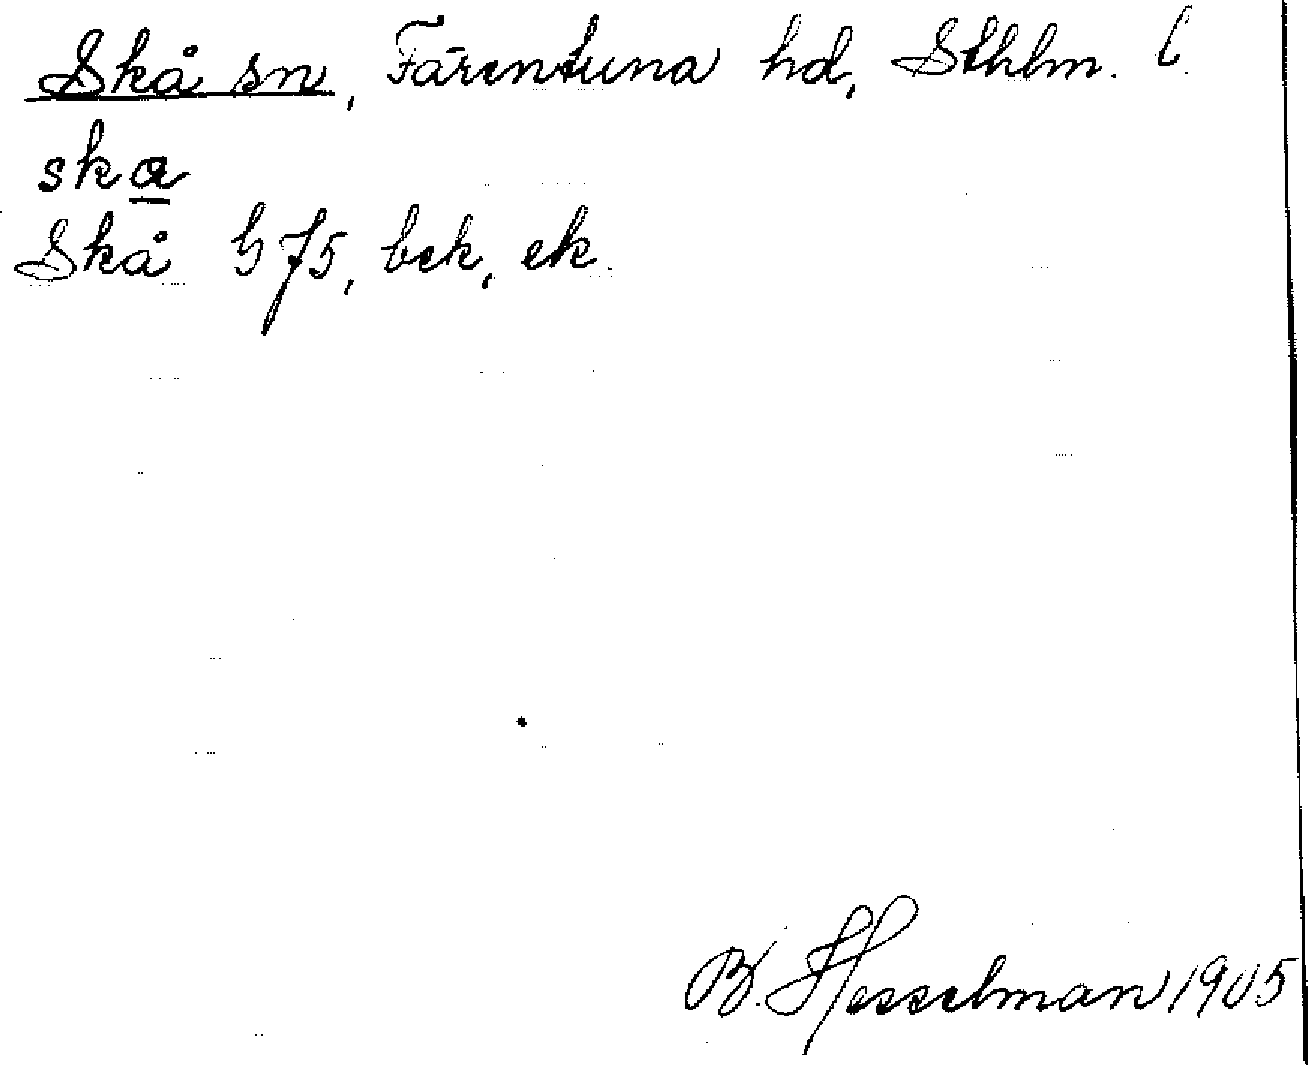 Skå sn, Färentuna hd, Sthlm. l.
ska
Skå G 75, bek, ek.
B. Hesselman 1905